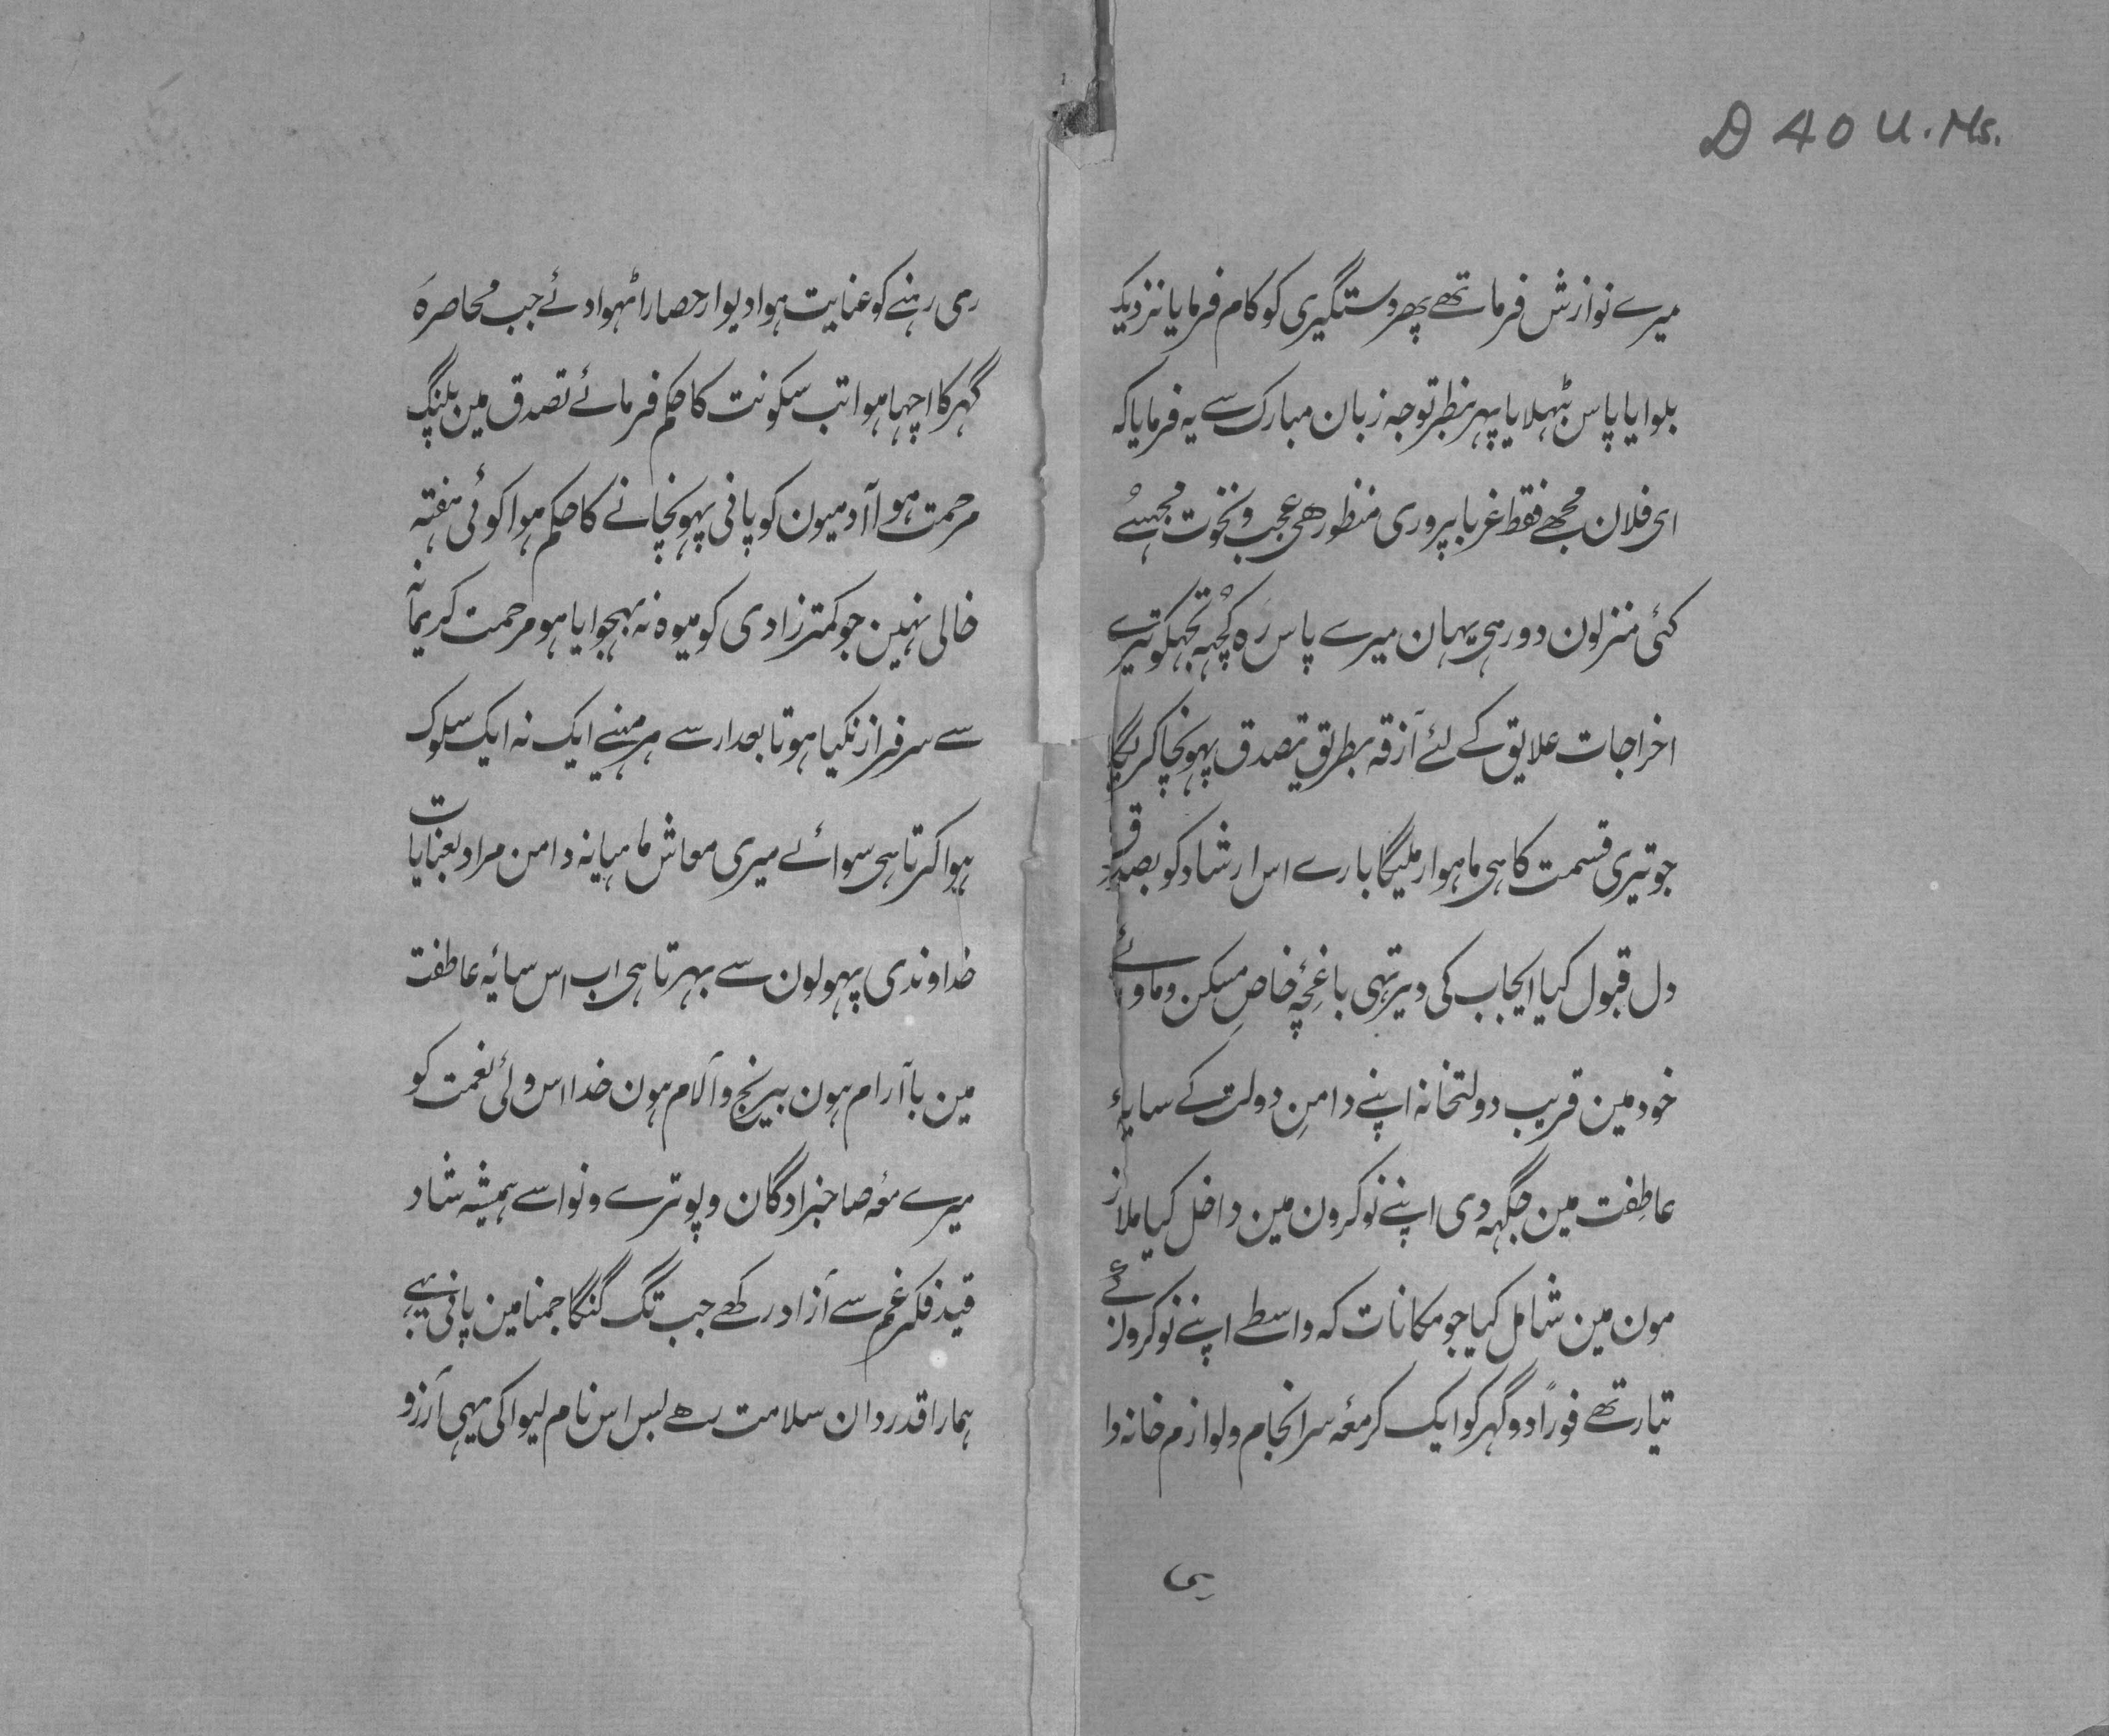 D 40 U. Ms.
میرے نوازش فرما تھے پھر دستگیری کو کام فرمایا نزدیک
بلوایا پاس بٹہلایا پہر بنظر توجہ زبان مبارک سے یہ فرمایا کہ
ای فلان مجھے فقط غربا پروری منظور ھی عجب و نخوت مجہسے
کئی منزلون دور ہی یہان میرے پاس رہ کُچہہ تجہکو تیرے
اخراجات علایق کے لئے آزقہ بطریق تصدق پہونچا کریگا
جو تیری قسمت کا ہی ماہوار ملیگا بارے اس ارشاد کو بصدق
دل قبول کیا ایجاب کی دیر تہی باغچۂ خاص مسکن و ماوائے
خود مین قریب دولتخانہ اپنے دامنِ دولت کے سایۂ
عاطِفت مین جگہہ دی اپنے نوکرون مین داخل کیا ملاز
مون مین شامل کیا جو مکانات کہ واسطے اپنے نوکرون کے
تیار تھے فوراً دو گہر کو ایک کر معہ سرانجام و لوازم خانہ دا
ری رہنے کو عنایت ہوا دیوار حصار اٹہوا دئے جب محاصرہَ
گہر کا اچہا ہوا تب سکونت کا حکم فرمائے تصدق مین پلنگ
مرحمت ہوا آدمیون کو پانی پہونچانے کا حکم ہوا کوئی ہفتہ
خالی نہین جو کمترزادی کو میوہ نہ بہجوایا ہو مرحمت کریمانہ
سے سرفراز نکیا ہو تابعدار سے ہر مہنے ایک نہ ایک سلوک
ہوا کرتا ہی سوائے میری معاش ماہیانہ دامن مراد بعنایات
خداوندی پہولون سے بہرتا ہی اب اس سایۂ عاطفت
مین با آرام ہون بیرنج و آلام ہون خدا اس ولئ نعمت کو
میرے معہ صاحبزادگان و پوترے و نواسے ہمیشہ شاد
قید فکر غم سے آزاد رکھے جب تگ گنگا جمنا مین پانی بہے
ہمارا قدردان سلامت رھے بس اس نام لیوا کی یہی آرزو